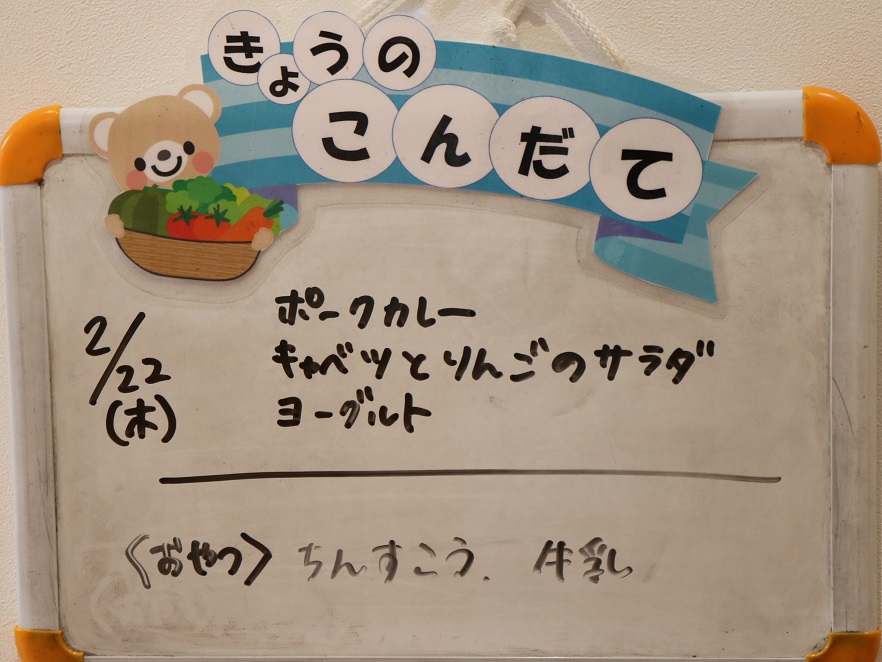 きょうの
こんだて
2/22
(木)
ポークカレー
キャベツとりんごのサラダ
ヨーグルト
〈おやつ〉 ちんすこう. 牛乳